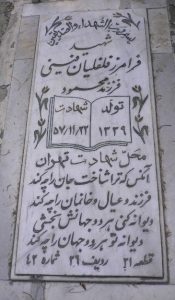 بسم رب الشهداء والصدیقین
شهید
فرامرز فلفلیان قزوینی
فرزند محمود
تولد شهادت
۱۳۳۹ ۵۷/۱۱/۲۲
محل شهادت تهران
آنکس که ترا شناخت جان را چه کند
فرزند و عیال و خانمان را چه کند
دیوانه کنی هر دو جهانش بخشی
دیوانه تو هر دو جهان را چه کند
قطعه ۲۱ ردیف ۲۶ شماره ۴۲